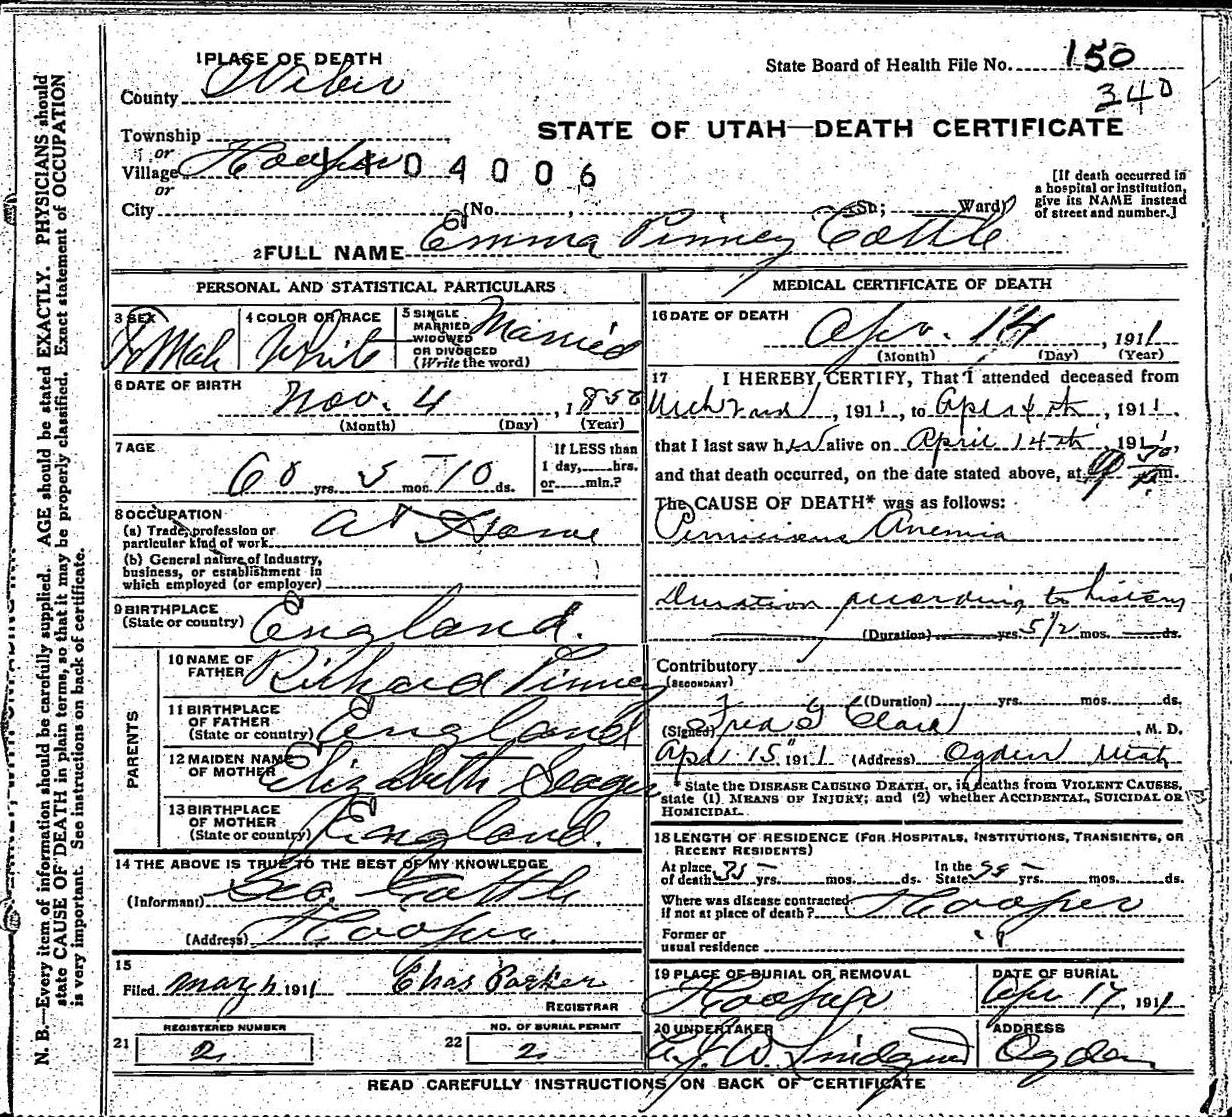 1 PLACE OF DEATH
County Weber
State Board of Health File No. 150
340
STATE OF UTAH—DEATH CERTIFICATE
Township
or
Village Hooper
1104006
or
City (No. , St; Ward)
[If death occurred in
a hospital or institution,
give its NAME instead
of street and number.]
2 FULL NAME Emma Pinney Cottle
PERSONAL AND STATISTICAL PARTICULARS
3 SEX
FeMale
4 COLOR OR RACE
White
5 SINGLE
MARRIED
WIDOWED
OR DIVORCED
(Write the word)
Married
6 DATE OF BIRTH
Nov. 4 , 1850
(Month) (Day) (Year)
7 AGE
60 yrs. 5 mos. 10 ds.
If LESS than
1 day, hrs.
or min.?
8 OCCUPATION
(a) Trade, profession or
particular kind of work At Home
(b) General nature of industry,
business, or establishment in
which employed (or employer)
9 BIRTHPLACE
(State or country) England.
PARENTS
10 NAME OF
FATHER Richard Pinney
11 BIRTHPLACE
OF FATHER
(State or country) England
12 MAIDEN NAME
OF MOTHER Elizabeth Seager
13 BIRTHPLACE
OF MOTHER
(State or country) England.
14 THE ABOVE IS TRUE TO THE BEST OF MY KNOWLEDGE
(Informant) Geo. Cottle
(Address) Hooper.
15
Filed May 1911 Chas Parker
REGISTRAR
REGISTERED NUMBER
21 2
NO. OF BURIAL PERMIT
22 2
MEDICAL CERTIFICATE OF DEATH
16 DATE OF DEATH
Apr. 14 , 1911
(Month) (Day) (Year)
17 I HEREBY CERTIFY, That I attended deceased from
, 1911, to Apr 14th, 1911,
that I last saw her alive on April 14th, 1911,
and that death occurred, on the date stated above, at m.
The CAUSE OF DEATH* was as follows:
Pernicious Anemia
Duration according to history
(Duration) yrs. 5 1/2 mos. ds.
Contributory
(SECONDARY)
(Duration) yrs. mos. ds.
(Signed) Fred G Clark , M. D.
Apr 15" 1911 (Address) Ogden Utah
* State the DISEASE CAUSING DEATH, or, in deaths from VIOLENT CAUSES,
state (1) MEANS OF INJURY; and (2) whether ACCIDENTAL, SUICIDAL OR
HOMICIDAL.
18 LENGTH OF RESIDENCE (FOR HOSPITALS, INSTITUTIONS, TRANSIENTS, OR
RECENT RESIDENTS)
At place
of death 35 yrs. mos. ds.
In the
State yrs. mos. ds.
Where was disease contracted
if not at place of death? Hooper
Former or
usual residence
19 PLACE OF BURIAL OR REMOVAL
Hooper
DATE OF BURIAL
Apr 17, 1911
20 UNDERTAKER
W. Lindquist
ADDRESS
Ogden
READ CAREFULLY INSTRUCTIONS ON BACK OF CERTIFICATE
N. B.—Every item of information should be carefully supplied. AGE should be stated EXACTLY. PHYSICIANS should
state CAUSE OF DEATH in plain terms, so that it may be properly classified. Exact statement of OCCUPATION
is very important. See instructions on back of certificate.